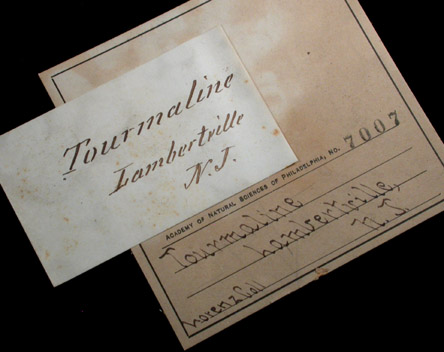 Tourmaline
Lambertville
N.J.
ACADEMY OF NATURAL SCIENCES OF PHILADELPHIA, NO. 7007
Tourmaline
Lambertville,
N.J.
Lorenz Coll